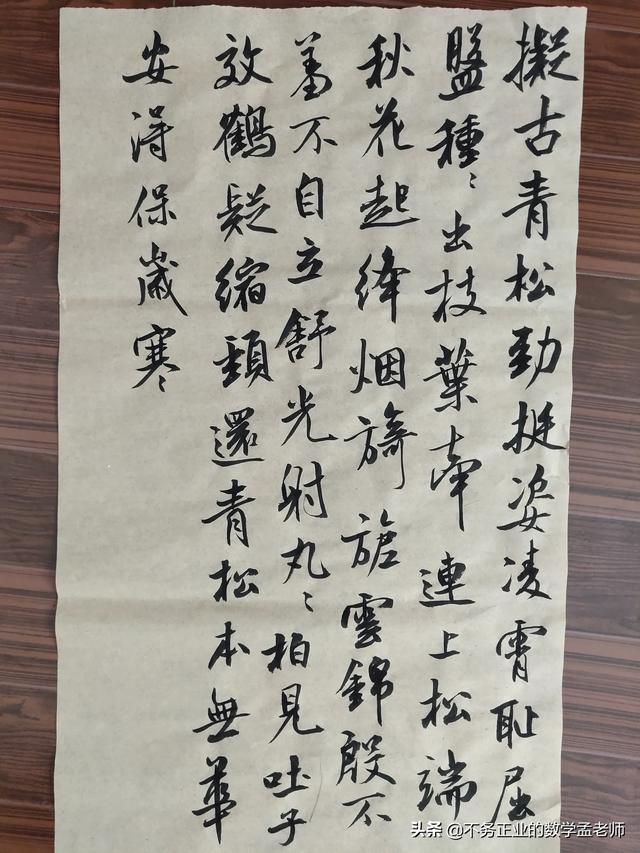 擬古青松勁挺姿凌霄恥屈
盤種〻出枝葉牽連上松端
秋花起絳烟旖旎雲錦殷不
羞不自立舒光射丸〻柏見吐子
效鶴疑縮頸還青松本無華
安得保歲寒
头条 @不务正业的数学孟老师